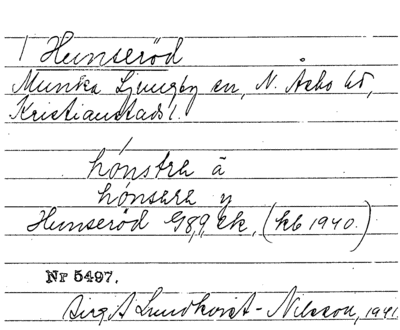 1 Hunseröd
Munka Ljungby sn, N. Åsbo hd,
Kristianstads l.
hónstra ä
hónsara y
Hunseröd G8,9 Ek, (kb 1940.)
Nr 5497.
Birgit Lundkvist-Nilsson, 1941.